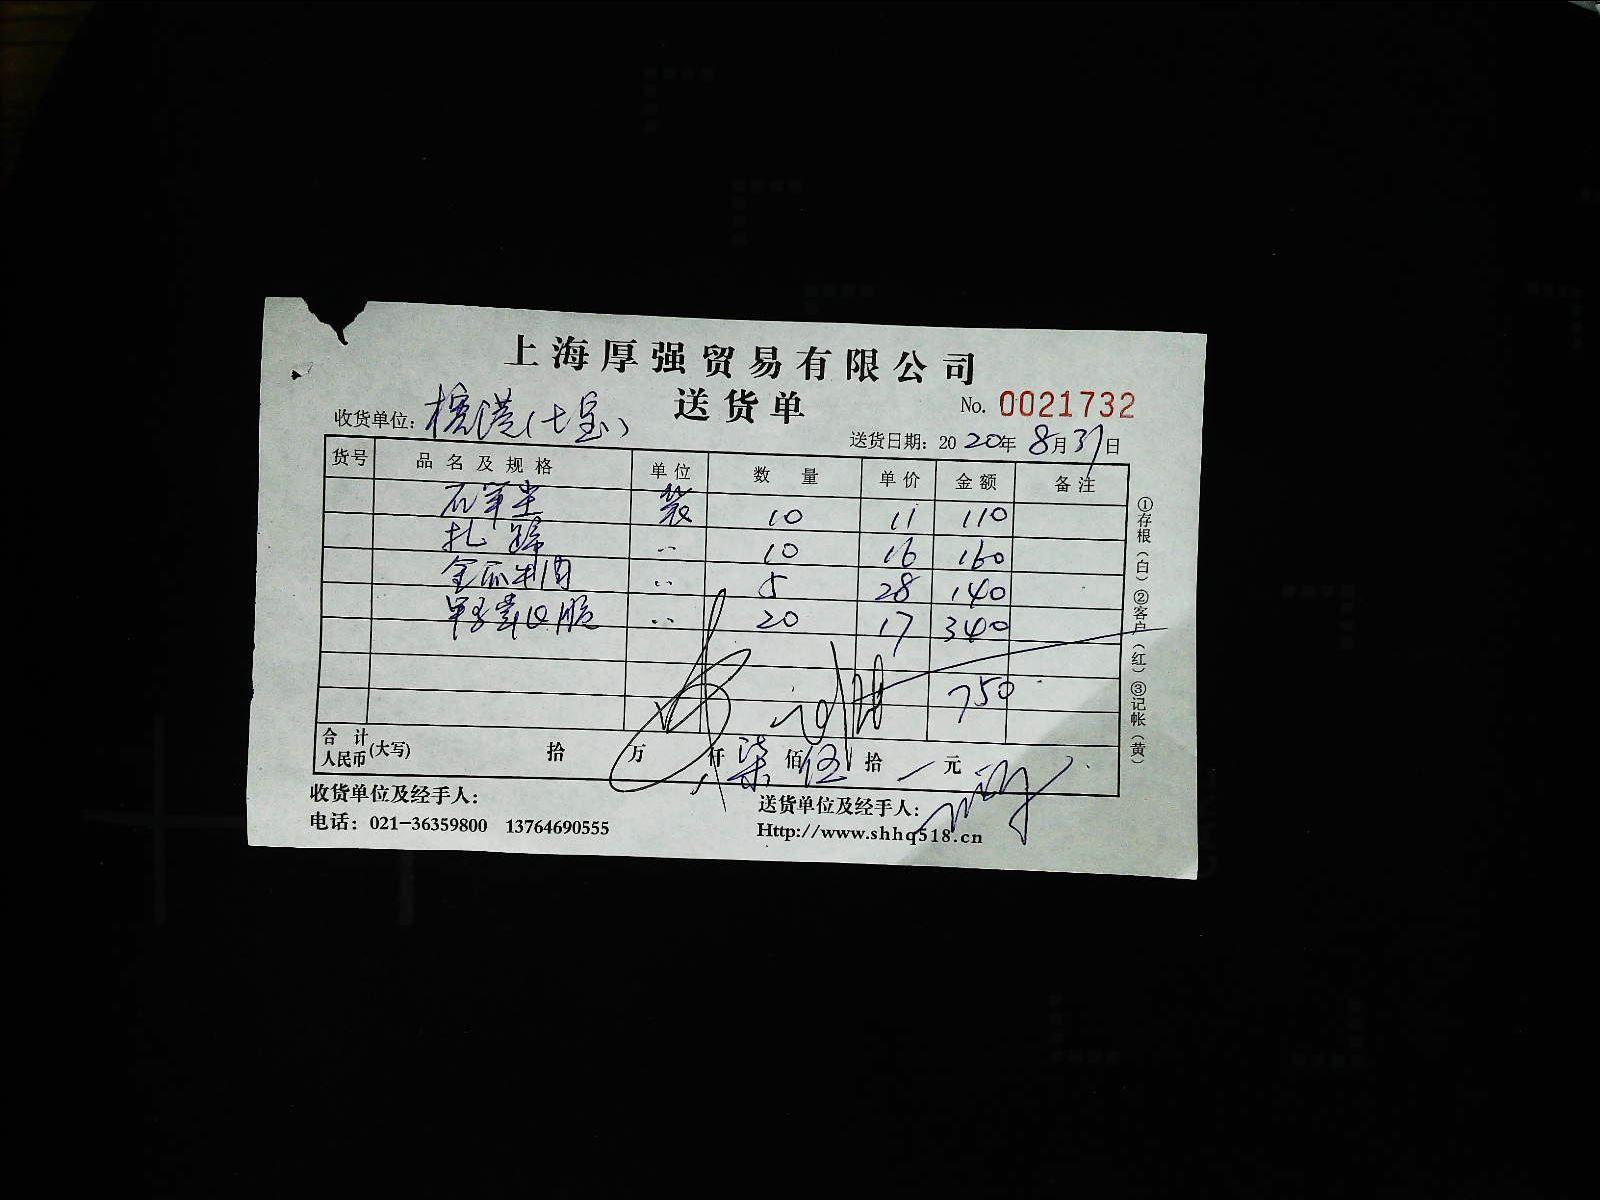 上海厚强贸易有限公司
送货单
No. 0021732
收货单位:
送货日期: 2020年 8月 31日
货号 品名及规格 单位 数量 单价 金额 备注
袋 10 11 110
扎蹄 〃 10 16 160
牛肉 〃 5 28 140
〃 20 17 340
750
合计人民币(大写) 拾 万 仟 柒 佰 伍 拾 元
收货单位及经手人:
送货单位及经手人:
电话: 021-36359800 13764690555
Http://www.shhq518.cn
①存根(白)②客户(红)③记帐(黄)